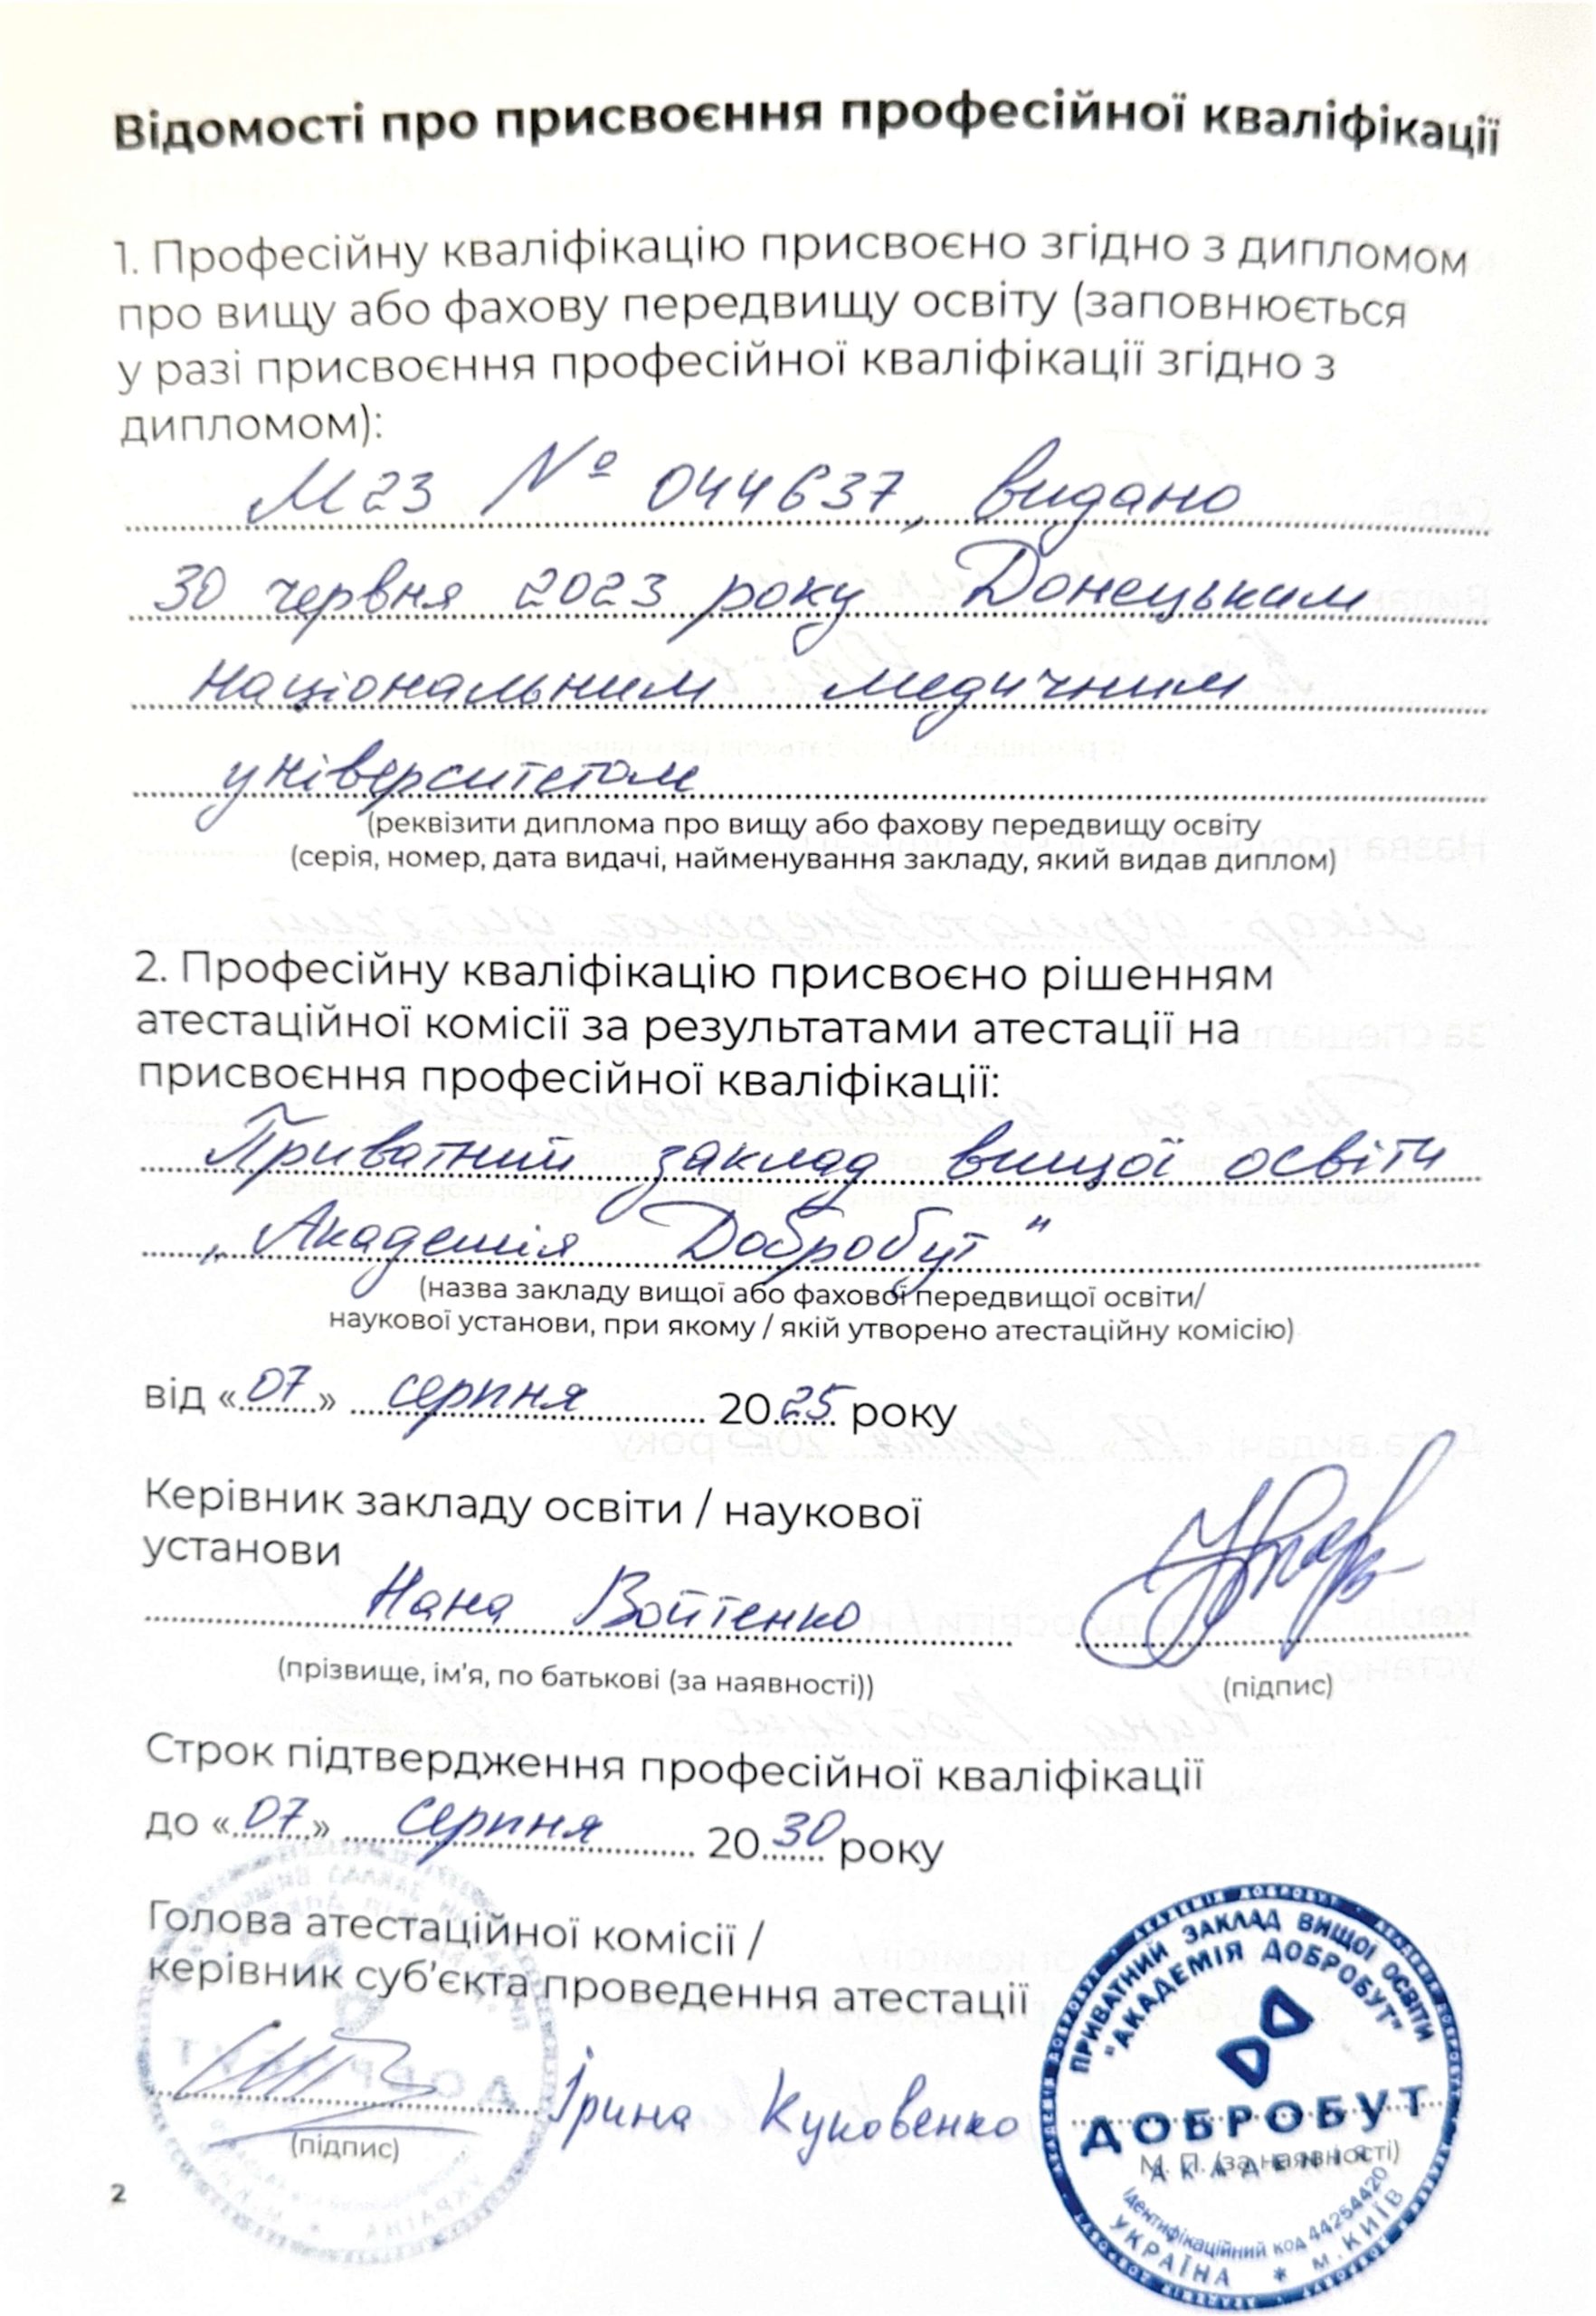 Відомості про присвоєння професійної кваліфікації
1. Професійну кваліфікацію присвоєно згідно з дипломом
про вищу або фахову передвищу освіту (заповнюється
у разі присвоєння професійної кваліфікації згідно з
дипломом):
М23 № 044637, видано
30 червня 2023 року Донецьким
національним медичним
університетом
(реквізити диплома про вищу або фахову передвищу освіту
(серія, номер, дата видачі, найменування закладу, який видав диплом)
2. Професійну кваліфікацію присвоєно рішенням
атестаційної комісії за результатами атестації на
присвоєння професійної кваліфікації:
Приватний заклад вищої освіти
„Академія Добробут"
(назва закладу вищої або фахової передвищої освіти/
наукової установи, при якому / якій утворено атестаційну комісію)
від «07» серпня 2025 року
Керівник закладу освіти / наукової
установи
Нана Войтенко
(прізвище, ім'я, по батькові (за наявності))
(підпис)
Строк підтвердження професійної кваліфікації
до «07» серпня 2030 року
Голова атестаційної комісії /
керівник суб'єкта проведення атестації
Ірина Куковенко
(підпис)
М. П. (за наявності)
ПРИВАТНИЙ ЗАКЛАД ВИЩОЇ ОСВІТИ
"АКАДЕМІЯ ДОБРОБУТ"
ДОБРОБУТ
АКАДЕМІЯ
Ідентифікаційний код 44254420
УКРАЇНА * м. КИЇВ
2